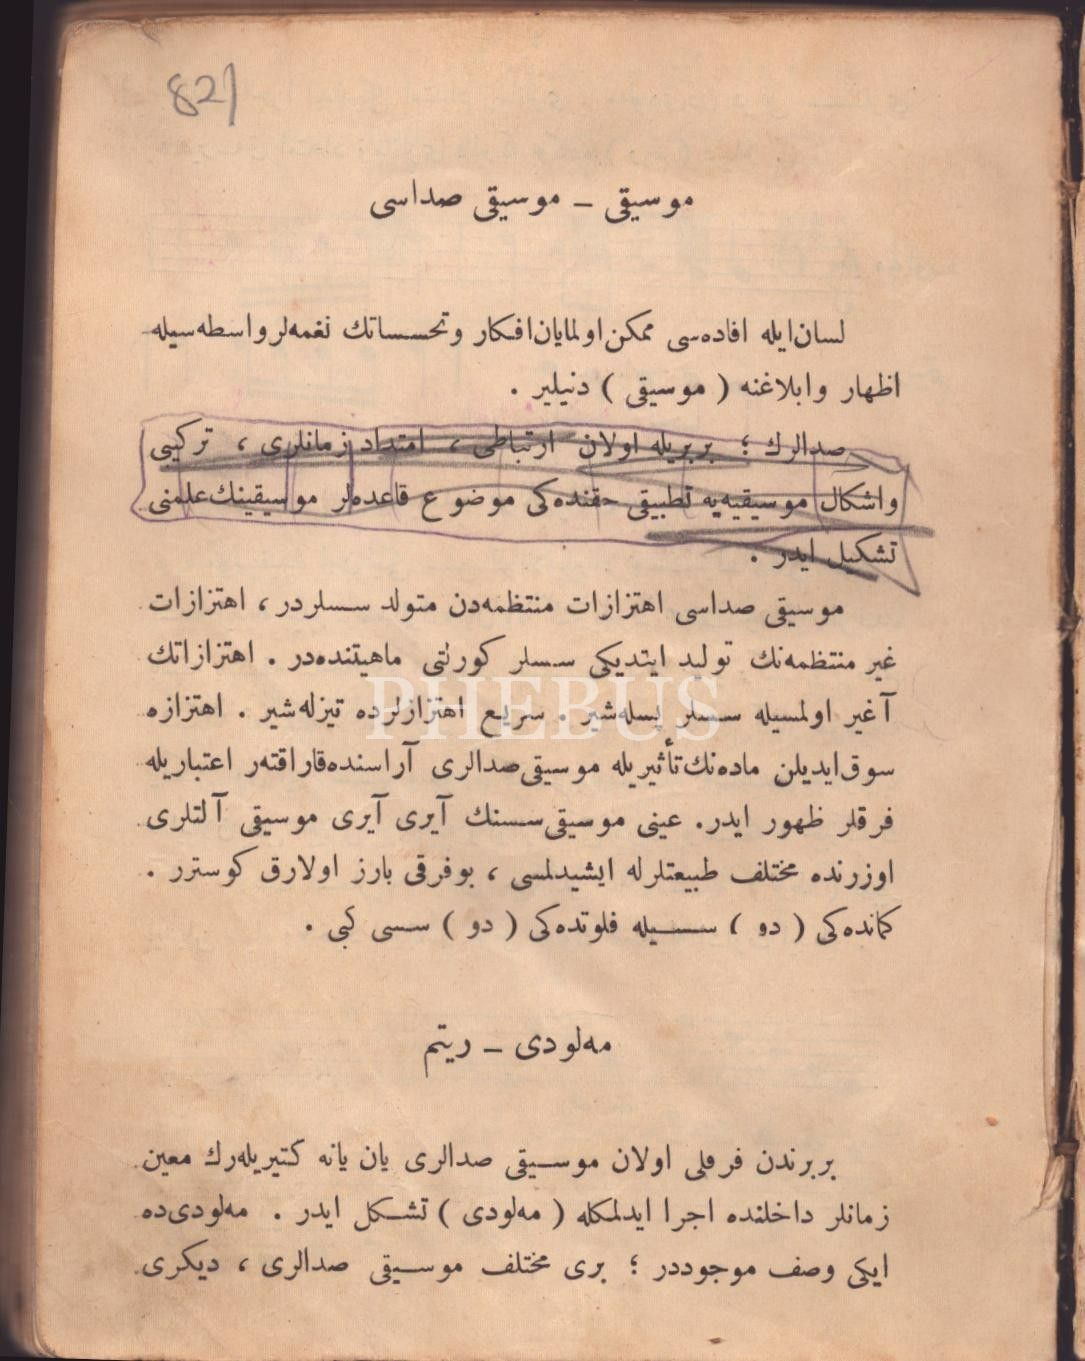 821
موسیقی ــ موسیقی صداسی
لسان ایله افاده‌سی ممکن اولمایان افکار و تحسساتك نغمه‌لر واسطه‌سیله
اظهار و ابلاغنه ( موسیقی ) دنیلیر .
صدالرك ؛ بربریله اولان ارتباطی ، امتداد زمانلری ، ترکیبی
و اشکال موسیقیه‌یه تطبیقی حقنده‌کی موضوع قاعده‌لر موسیقینك علمنی
تشکیل ایدر .
موسیقی صداسی اهتزازات منتظمه‌دن متولد سسلردر ، اهتزازات
غیر منتظمه‌نك تولید ایتدیکی سسلر کورلتی ماهیتنده‌در . اهتزازاتك
آغیر اولمسیله سسلر پسله‌شیر . سریع اهتزازلرده تیزله‌شیر . اهتزازه
سوق ایدیلن ماده‌نك تأثیریله موسیقی صدالری آراسنده قاراقته‌ر اعتباریله
فرقلر ظهور ایدر. عینی موسیقی سسنك آیری آیری موسیقی آلتلری
اوزرنده مختلف طبیعتلرله ایشیدلمسی ، بوفرقی بارز اولارق کوسترر .
کمانده‌کی ( دو ) سسیله فلوتده‌کی ( دو ) سسی کبی .
مه‌لودی ــ ریتم
بربرندن فرقلی اولان موسیقی صدالری یان یانه کتیریله‌رك معین
زمانلر داخلنده اجرا ایدلمکله ( مه‌لودی ) تشکل ایدر . مه‌لودی‌ده
ایکی وصف موجوددر ؛ بری مختلف موسیقی صدالری ، دیکری
PHEBUS